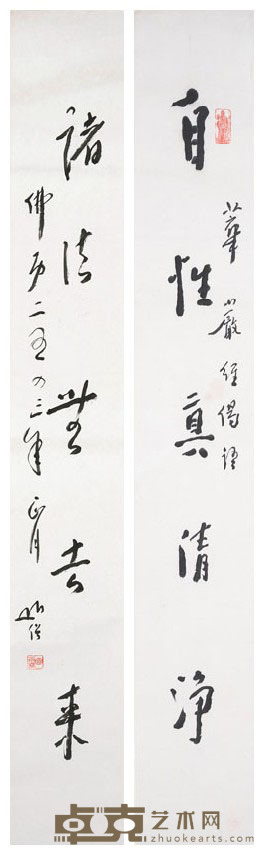 自性真清淨
華嚴經偈語
諸法無去來
佛历二五四三年正月
卓克艺术网
www.zhuokearts.com